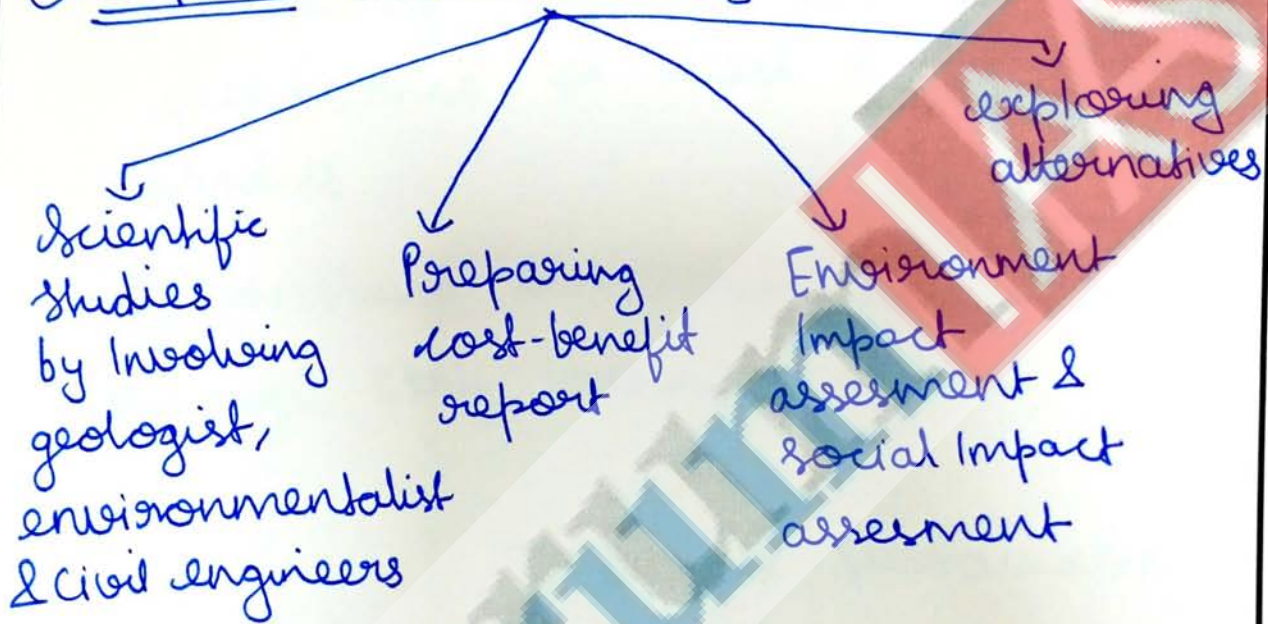 Scientific
studies
by Involving
geologist,
environmentalist
& Civil engineers
Preparing
cost-benefit
report
Environment
Impact
assesment &
social Impact
assesment
exploring
alternatives
IAS